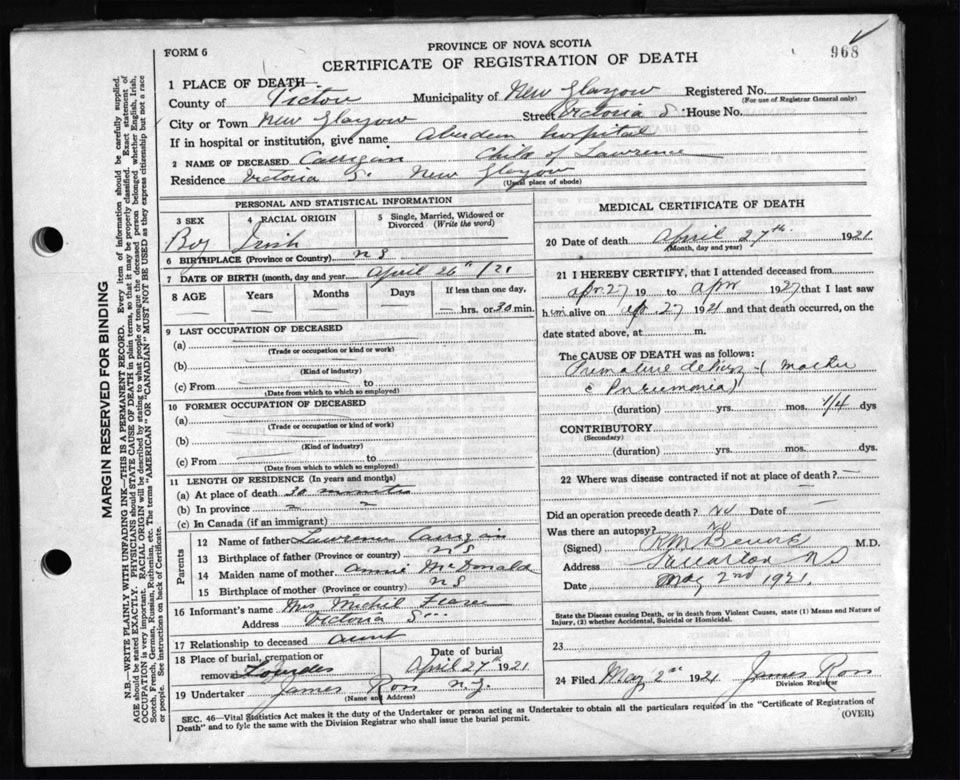 968
FORM 6
PROVINCE OF NOVA SCOTIA
CERTIFICATE OF REGISTRATION OF DEATH
1 PLACE OF DEATH—
County of Pictou Municipality of New Glasgow Registered No.
(For use of Registrar General only)
City or Town New Glasgow Street Victoria S. House No.
If in hospital or institution, give name Aberdeen hospital
2 NAME OF DECEASED Carrigan Child of Lawrence
Residence Victoria S. New Glasgow
(Usual place of abode)
PERSONAL AND STATISTICAL INFORMATION
3 SEX 4 RACIAL ORIGIN 5 Single, Married, Widowed or Divorced (Write the word)
Boy Irish
6 BIRTHPLACE (Province or Country) N S
7 DATE OF BIRTH (month, day and year) April 26th /21
8 AGE Years Months Days If less than one day,
hrs. or 30 min.
9 LAST OCCUPATION OF DECEASED
(a)
(Trade or occupation or kind or work)
(b)
(Kind of industry)
(c) From to
(Date from which to which so employed)
10 FORMER OCCUPATION OF DECEASED
(a)
(Trade or occupation or kind of work)
(b)
(Kind of industry)
(c) From to
(Date from which to which so employed)
11 LENGTH OF RESIDENCE (In years and months)
(a) At place of death 30 minutes
(b) In province
(c) In Canada (if an immigrant)
Parents
12 Name of father Lawrence Carrigan
13 Birthplace of father (Province or country) N S
14 Maiden name of mother Annie McDonald
15 Birthplace of mother (Province or country) N S
16 Informant's name Mrs Fraser
Address Victoria S
17 Relationship to deceased Aunt
18 Place of burial, cremation or removal Lourdes
Date of burial
April 27th 1921
19 Undertaker James Ross N. G.
(Name and Address)
MEDICAL CERTIFICATE OF DEATH
20 Date of death April 27th 1921
(Month, day and year)
21 I HEREBY CERTIFY, that I attended deceased from
Apr. 27 19 to Apr 1927 that I last saw
him alive on Ap. 27 1921 and that death occurred, on the
date stated above, at m.
The CAUSE OF DEATH was as follows:
Premature (Mother
c Pneumonia)
(duration) yrs. mos. 1/4 dys
CONTRIBUTORY
(Secondary)
(duration) yrs. mos. dys.
22 Where was disease contracted if not at place of death?
Did an operation precede death? No Date of
Was there an autopsy? No
(Signed) M.D.
Address Stellarton NS
Date May 2nd 1921.
State the Disease causing Death, or in death from Violent Causes, state (1) Means and Nature of
Injury, (2) whether Accidental, Suicidal or Homicidal.
23
24 Filed May 2nd 1921 James Ross
Division Registrar
SEC. 46—Vital Statistics Act makes it the duty of the Undertaker or person acting as Undertaker to obtain all the particulars required in the "Certificate of Registration of
Death" and to fyle the same with the Division Registrar who shall issue the burial permit.
(OVER)
MARGIN RESERVED FOR BINDING
N.B.—WRITE PLAINLY WITH UNFADING INK—THIS IS A PERMANENT RECORD. Every item of information should be carefully supplied.
AGE should be stated EXACTLY. PHYSICIANS should STATE CAUSE OF DEATH in plain terms, so that it may be properly classified. Exact statement of
OCCUPATION is very important. RACIAL ORIGIN will be described by stating to what people or tongue the deceased person belonged whether English, Irish,
Scotch, French, German, Russian, Ruthenian, etc. The terms "AMERICAN" OR "CANADIAN" MUST NOT BE USED as they express citizenship but not a race
or people. See instructions on back of Certificate.